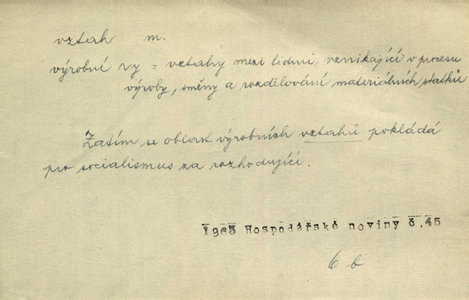 vztah m.
výrobní v-y = vztahy mezi lidmi, vznikající v procesu
výroby, směny a rozdělování materiálních statků
Zatím se oblast výrobních vztahů pokládá
pro socialismus za rozhodující.
Hospodářské noviny č.45
6 b